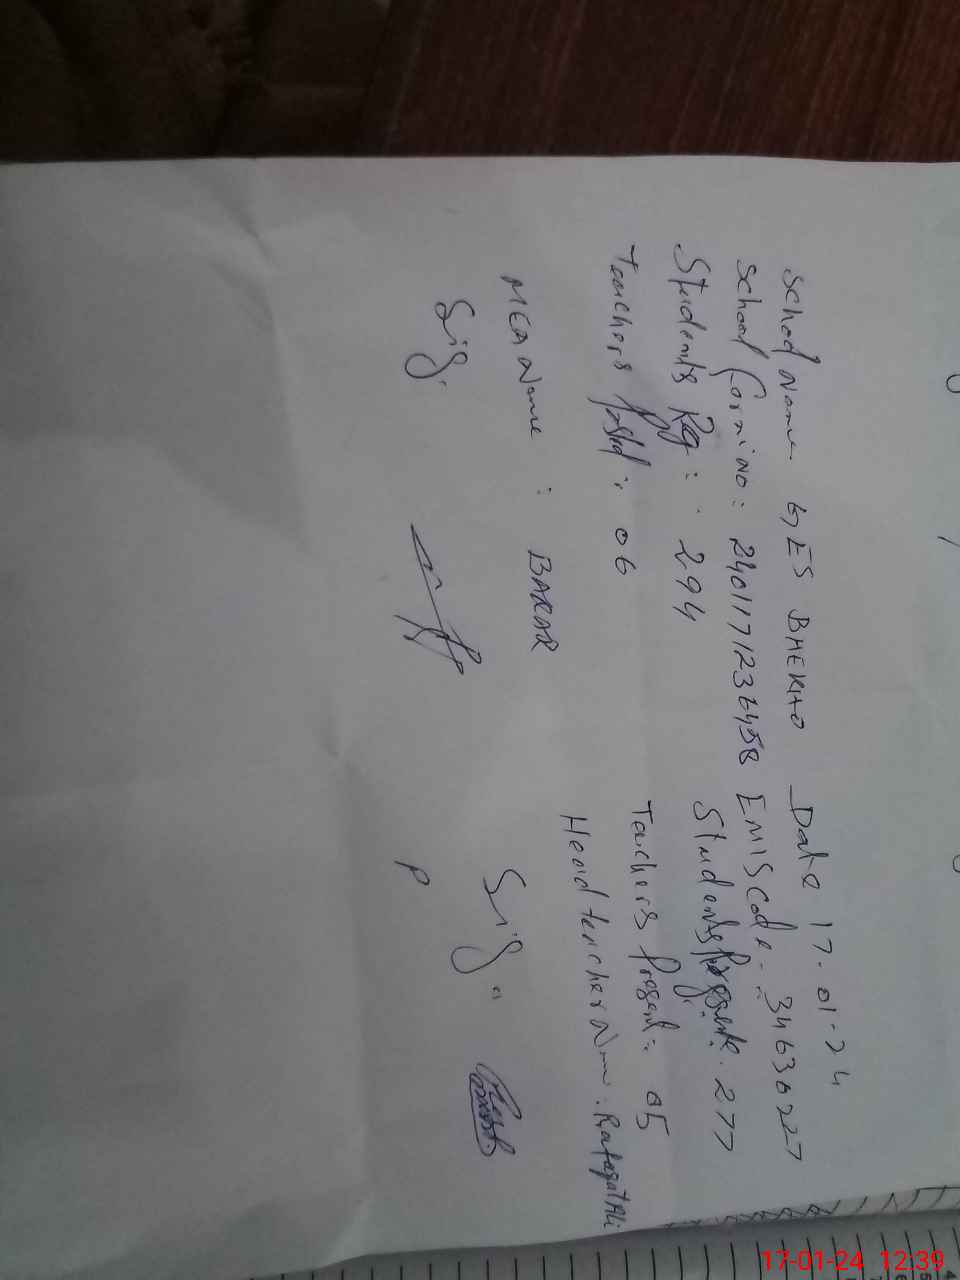 School Name GES BHEKHO Date 17-01-24
School Form no: 2401171236458 EMIS Code: 34630227
Students Reg: 294 Students Present: 277
Teachers Posted: 06 Teachers Present: 05
Head teacher Name: Rafaqat Ali
MEA Name : BABAR
Sig. Sig:
P
17-01-24 12:39